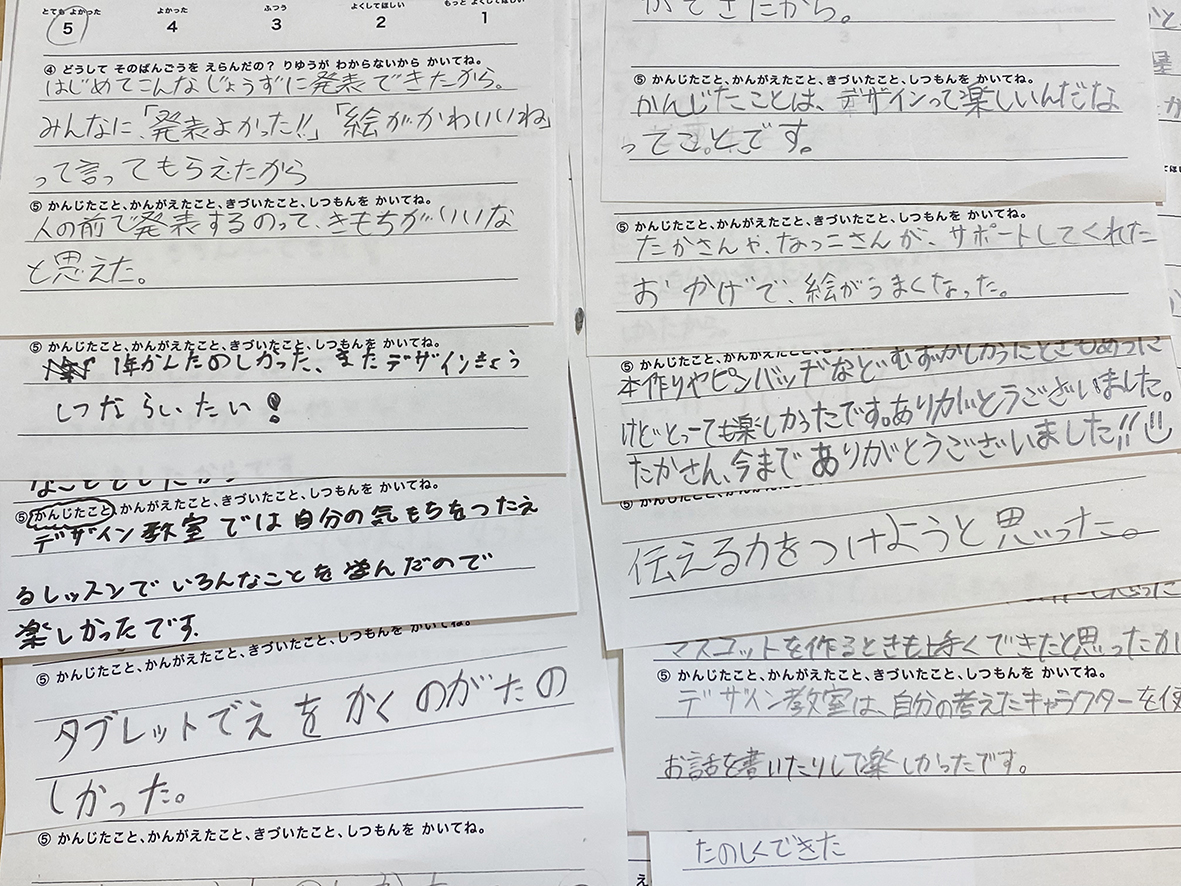 とても よかった よかった ふつう よくしてほしい もっと よくしてほしい
5 4 3 2 1
④ どうして そのばんごうを えらんだの？ りゆうが わからないから かいてね。
はじめてこんなじょうずに発表できたから。
みんなに、「発表よかった!!」「絵がかわいいね」
って言ってもらえたから
⑤ かんじたこと、かんがえたこと、きづいたこと、しつもんを かいてね。
人の前で発表するのって、きもちがいいな
と思えた。
⑤ かんじたこと、かんがえたこと、きづいたこと、しつもんを かいてね。
1年かんたのしかった、またデザインきょう
しつならいたい!
なこともしたからです
⑤ かんじたこと、かんがえたこと、きづいたこと、しつもんを かいてね。
デザイン教室では自分の気もちをつたえ
るレッスンでいろんなことを学んだので
楽しかったです.
⑤ かんじたこと、かんがえたこと、きづいたこと、しつもんを かいてね。
タブレットでえをかくのがたの
しかった。
⑤ かんじたこと、かんがえたこと、きづいたこと、しつもんを かいてね。
ができたから。
⑤ かんじたこと、かんがえたこと、きづいたこと、しつもんを かいてね。
かんじたことは、デザインって楽しいんだな
ってことです。
⑤ かんじたこと、かんがえたこと、きづいたこと、しつもんを かいてね。
たかさんや、なっこさんが、サポートしてくれた
おかげで、絵がうまくなった。
⑤ かんじたこと、かんがえたこと、きづいたこと、しつもんを かいてね。
本作りやピンバッヂなどむずかしかったときもあった
けどとっても楽しかったです。ありがとうございました。
たかさん、今までありがとうございました!!
伝える力をつけようと思った。
マスコットを作るときも上手くできたと思ったか
⑤ かんじたこと、かんがえたこと、きづいたこと、しつもんを かいてね。
デザイン教室は、自分の考えたキャラクターを使
お話を書いたりして楽しかったです。
たのしくできた